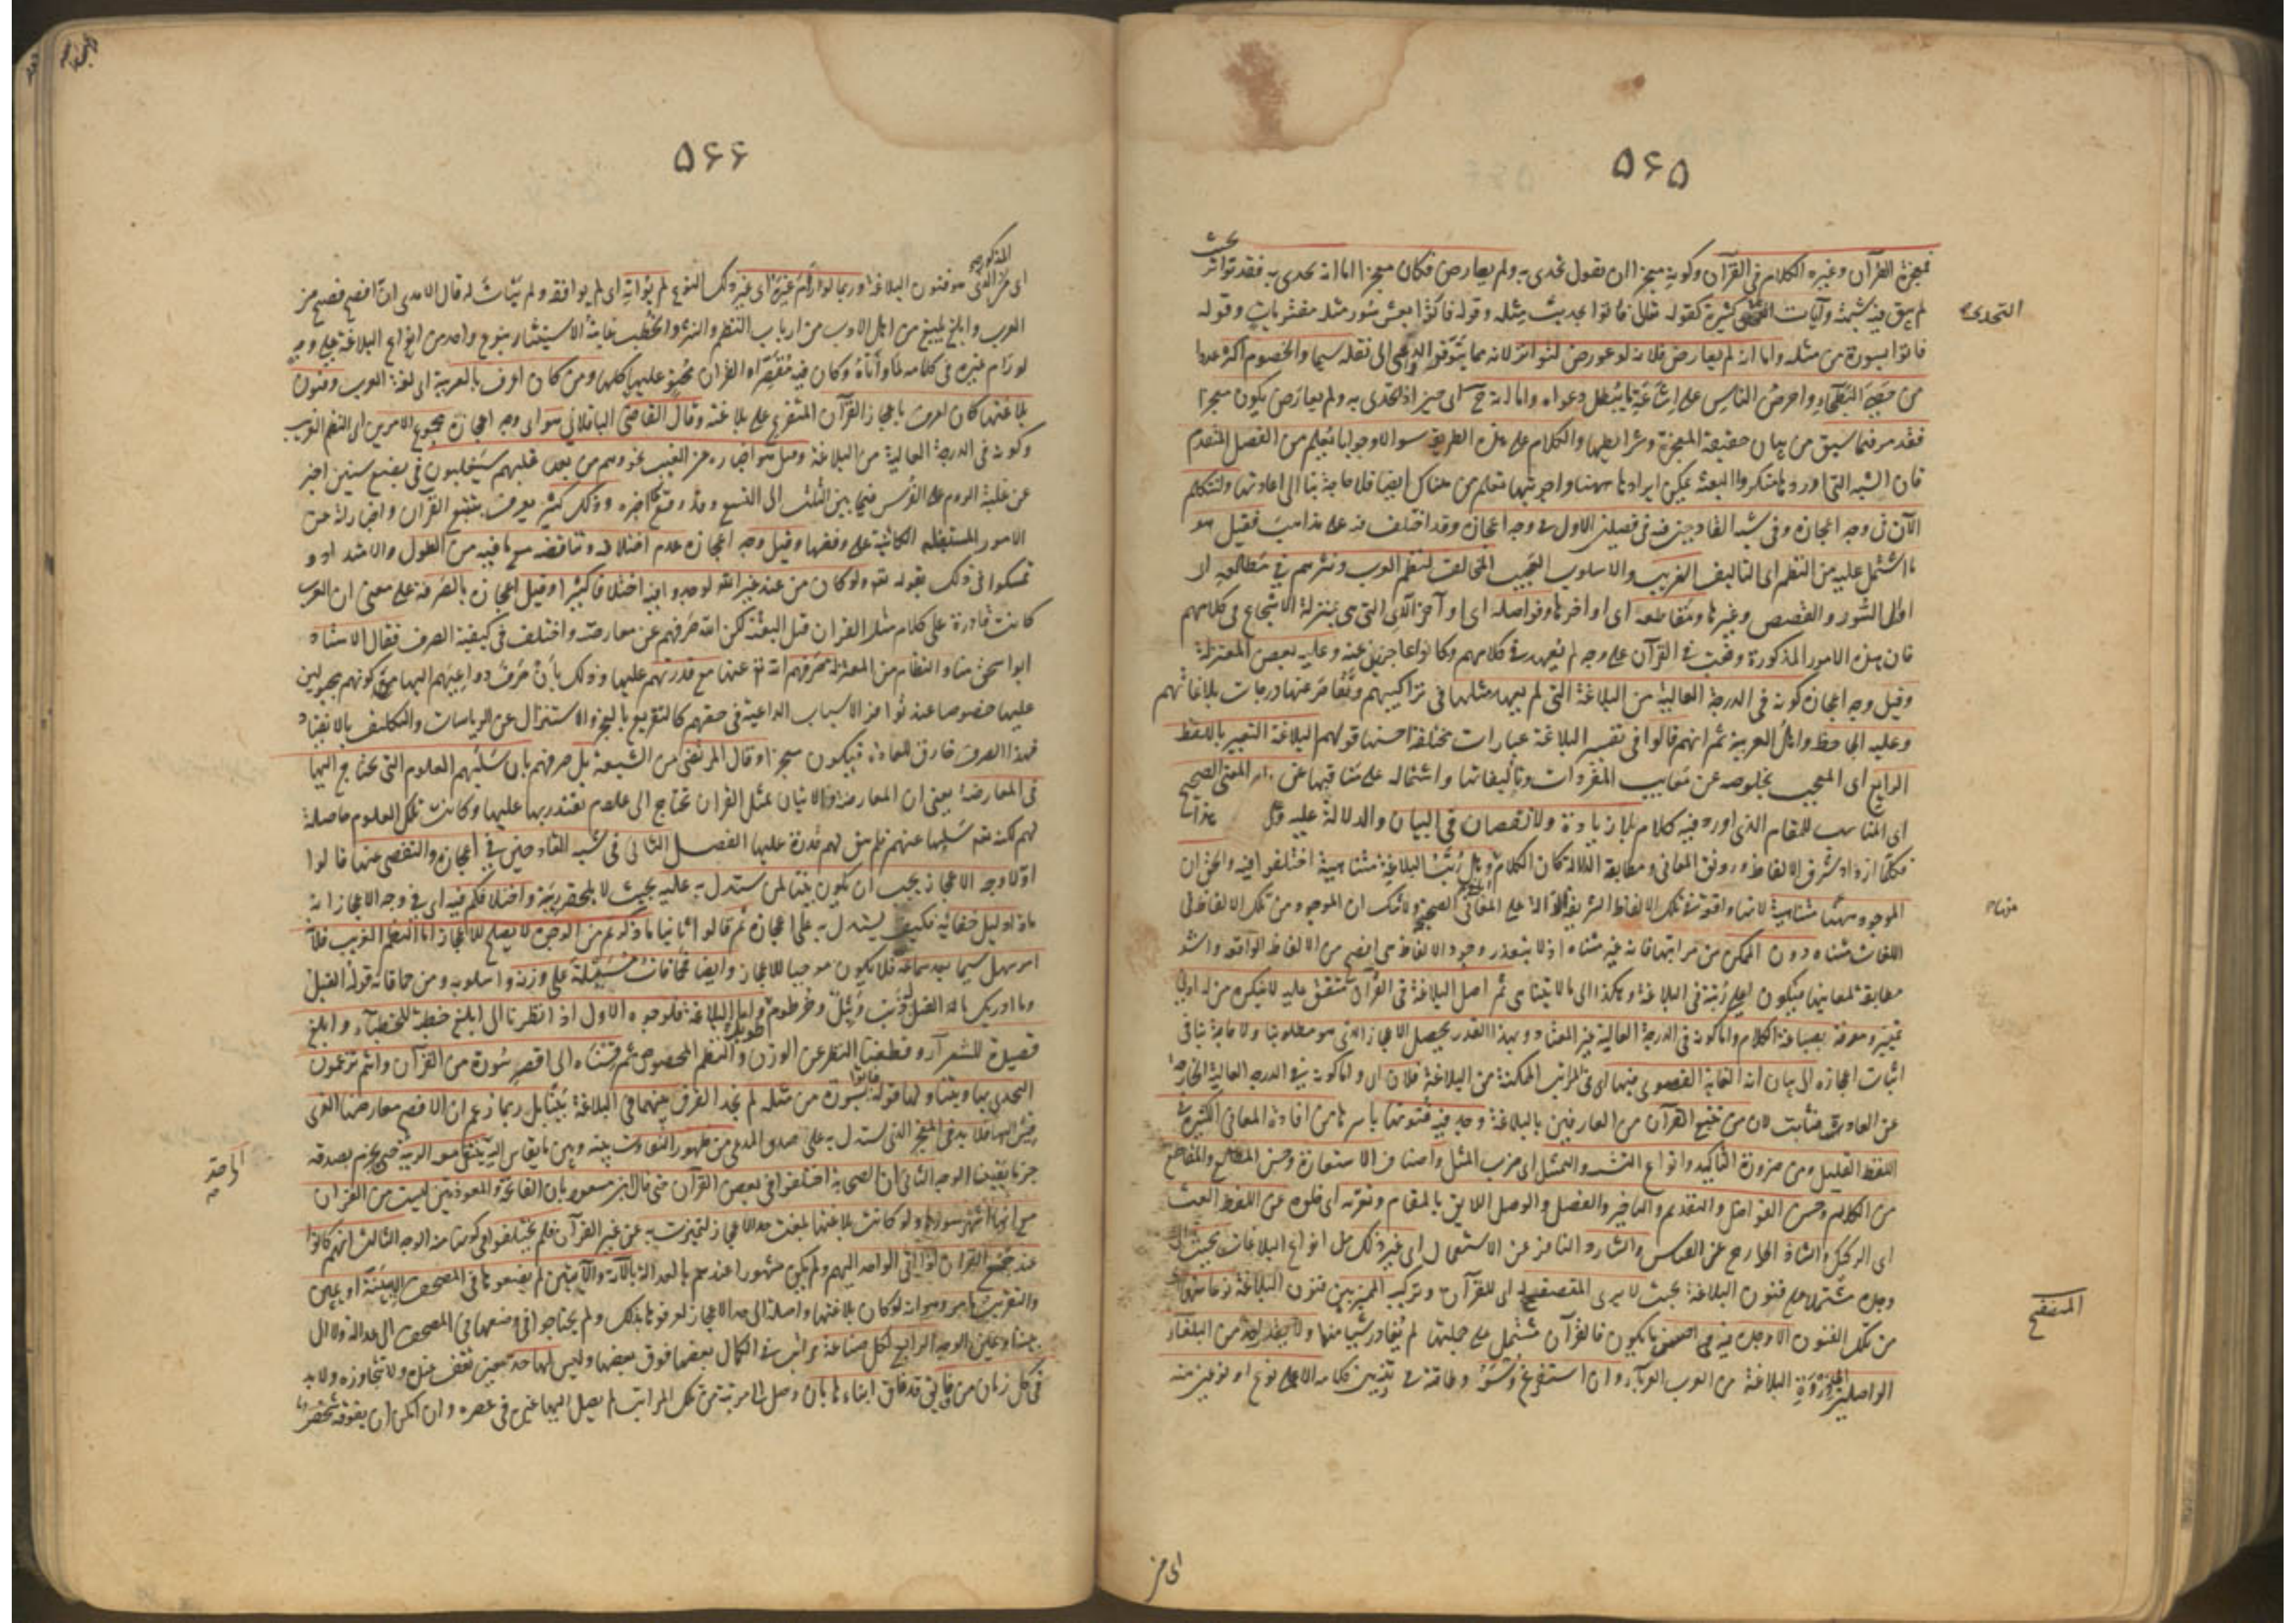 ۵۶۵
فمعجزة القرآن وغيره الكلام فى القرآن وكونه معجزا ان نقول تحدى به ولم يعارض فكان معجزا اما انه تحدى به فقد تواتر بحيث
لم يبق فيه شبهة وآيات التحدى كثيرة كقوله تعالى فاتوا بحديث مثله وقوله فاتوا بعشر سور مثله مفتريات وقوله
التحدى
فاتوا بسورة من مثله واما انه لم يعارض فلانه لو عورض لتواتر لانه مما يتوفر الدواعى الى نقله سيما والخصوم اكثر عددا
من حصى البطحاء واحرص الناس على اشاعة ما يبطل دعواه واما انه ح اى حين اذ تحدى به ولم يعارض يكون معجزا
فقد مر فيما سبق من بيان حقيقة المعجزة وشرائطها والكلام على هذه الطريقة سؤالا وجوابا يعلم من الفصل المتقدم
فان الشبه التى اوردها منكروا البعثة يمكن ايرادها ههنا واجوبتها تعلم من هناك ايضا فلا حاجة بنا الى اعادتها ولنتكلم
الآن فى وجه اعجازه وفى شبه القادحين فيه فى فصلين الاول فى وجه اعجازه وقد اختلف فيه على مذاهب فقيل هو
ما اشتمل عليه من النظم اى التاليف الغريب والاسلوب العجيب المخالف لنظم العرب ونثرهم فى مطالعه اى
اوائل السور والقصص وغيرها ومقاطعه اى اواخرها وفواصله اى اواخر الآى التى هى بمنزلة الاسجاع فى كلامهم
فان هذه الامور المذكورة وقعت فى القرآن على وجه لم يعهد فى كلامهم وكانوا عاجزين عنه وعليه بعض المعتزلة
وقيل وجه اعجازه كونه فى الدرجة العالية من البلاغة التى لم يعهد مثلها فى تراكيبهم وتقاصر عنها درجات بلاغاتهم
وعليه الجاحظ واهل العربية ثم انهم قالوا فى تفسير البلاغة عبارات مختلفة احسنها قولهم البلاغة التعبير باللفظ
الرايع اى المعجب بخلوصه عن معايب المفردات وتأليفاتها واشتماله على مناقبها عن المعنى الصحيح
اى المناسب للمقام الذى اورد فيه كلام بلا زيادة ولا نقصان فى البيان والدلالة عليه
فكلما ازداد شرف الالفاظ ورونق المعانى ومطابقة الدلالة كان الكلام ابلغ وهل رتب البلاغة متناهية اختلفوا فيه والحق ان
الموجود منها متناهية لانها واقعة فى تلك الالفاظ الشريفة الدالة على المعانى الصحيحة ولا شك ان الموجود من تلك الالفاظ فى
اللغات متناه دون الممكن من مراتبها فانه غير متناه اذ لا يتعذر وجود الالفاظ هى افصح من الالفاظ الواقعة واشد
مطابقة لمعانيها فيكون اعلى رتبة فى البلاغة وهكذا الى ما لا يتناهى ثم اصل البلاغة فى القرآن متفق عليه لا ينكره من له ادنى
تمييز ومعرفة بصياغة الكلام واما كونه فى الدرجة العالية غير المعتادة وبهذا القدر يحصل الاعجاز الذى هو مطلوبنا ولا حاجة بنا فى
اثبات اعجازه الى بيان انه الغاية القصوى فيها اى فى المراتب الممكنة من البلاغة فلان
عن العادة فثابت لان من تتبع القرآن من العارفين بالبلاغة وجد فيه فنونها باسرها من افادة المعانى الكثيرة
اللفظ القليل ومن ضروب التاكيد وانواع التشبيه والتمثيل اى ضرب المثل واصناف الاستعارة وحسن المطالع والمقاطع
من الكلام وحسن الفواصل والتقديم والتاخير والفصل والوصل اللايق بالمقام وتعريه اى خلوه عن اللفظ الغث
اى الركيك والشاذ الخارج عن القياس والشارد النافر عن الاستعمال الى غير ذلك من انواع البلاغات بحيث
وجده مشتملا على فنون البلاغة بحيث لا يرى المتصفح له اى للقرآن وتركيب المميز بين فنون البلاغة نوعا منها
من تلك الفنون الا وجده فيه احسن ما يكون فالقرآن مشتمل على جملتها لم يغادر شيئا منها ولا يقدر احد من البلغاء
المتصفح
الواصلين الى ذروة البلاغة من العرب العرباء وان استفرغ وسعه وطاقته فى تزيين كلامه الا على نوع او نوعين منه
اى من
۵۶۶
اى من الذى هو فنون البلاغة وربما لو رام غيره اى غير ذلك النوع لم يواته اى لم يوافقه ولم يتأت له قال الآمدى ان افصح فصيح من
المذكور
العرب وابلغ بليغ من اهل الادب من ارباب النظم والنثر والخطب غاية الاستيثار بنوع واحد من انواع البلاغة على وجه
لو رام غيره فى كلامه لما واتاه وكان فيه مقصرا والقرآن محتو عليها كلها ومن كان اعرف بالعربية اى لغة العرب وفنون
بلاغتها كان اعرف باعجاز القرآن المتفرع على بلاغته وقال القاضى الباقلانى هو اى وجه اعجازه مجموع الامرين اى النظم الغريب
وكونه فى الدرجة العالية من البلاغة وقيل هو اخباره عن الغيب نحو وهم من بعد غلبهم سيغلبون فى بضع سنين اخبر
عن غلبة الروم على الفرس فيما بين الثلث الى التسع وقد وقع كما اخبر وذلك كثير يعرف بتتبع القرآن واخباره عن
الامور المستقبلة الكائنة على وفقها وقيل وجه اعجازه عدم اختلافه وتناقضه مع ما فيه من الطول والامتداد و
تمسكوا فى ذلك بقوله تع ولو كان من عند غير الله لوجدوا فيه اختلافا كثيرا وقيل اعجازه بالصرفة على معنى ان العرب
كانت قادرة على كلام مثل القرآن قبل البعثة لكن الله صرفهم عن معارضته واختلف فى كيفية الصرف فقال الاستاد
ابو اسحق منا والنظام من المعتزلة صرفهم الله تع عنها مع قدرتهم عليها وذلك بأن صرف دواعيهم اليها مع كونهم مجبولين
عليها خصوصا عند توافر الاسباب الداعية فى حقهم كالتقريع بالعجز والاستنزال عن الرياسات والتكليف بالانقياد
فهذا الصرف خارق للعادة فيكون معجزا وقال المرتضى من الشيعة بل صرفهم بان سلبهم العلوم التى يحتاج اليها
فى المعارضة يعنى ان المعارضة والاتيان بمثل القرآن تحتاج الى علوم يقتدر بها عليها وكانت تلك العلوم حاصلة
لهم لكنه تع سلبها عنهم فلم يبق لهم قدرة عليها الفصل الثانى فى شبه القادحين فى اعجازه والتفصى عنها قالوا
اولا وجه الاعجاز يجب ان يكون بينا لمن يستدل به عليه بحيث لا يلحقه ريبة واختلافكم فيه اى فى وجه الاعجاز انه
ماذا دليل خفائه فكيف يستدل به على اعجازه ثم قالوا ثانيا ما ذكرتم من الوجوه لا يصلح للاعجاز اما النظم الغريب فلانه
امر سهل سيما بعد سماعه فلا يكون موجبا للاعجاز وايضا فحماقات مسيلمة على وزنه واسلوبه ومن حماقاته قوله الفيل
وما ادريك ما الفيل له ذنب وثيل وخرطوم طويل واما البلاغة فلوجوه الاول اذا نظرنا الى ابلغ خطبة للخطباء وابلغ
قصيدة للشعراء وقطعنا النظر عن الوزن والنظم المخصوص ثم قسناه الى اقصر سورة من القرآن وانتم تزعمون
التحدى بها ويتناولها قوله فاتوا بسورة من مثله لم نجد الفرق بينهما فى البلاغة بينا بل ربما زعم ان الافصح معارضها الذى
قيس اليها فلا بد فى المعجز الذى يستدل به على صدق المدعى من ظهور التفاوت بينه وبين ما يقاس اليه حتى ينتفى معه الريبة ويجزم بصدقه
جزما يقينا الوجه الثانى ان الصحابة اختلفوا فى بعض القرآن حتى قال ابن مسعود بان الفاتحة والمعوذتين ليست من القرآن
مع انها اشهر سوره ولو كانت بلاغتها بلغت حد الاعجاز لتميزت به عن غير القرآن فلم يختلفوا فى كونها منه الوجه الثالث انهم كانوا
عند جمع القرآن اذا اتى الواحد اليهم ولم يكن مشهورا عندهم بالعدالة بالآية والآيتين لم يضعوها فى المصحف الا ببينة او يمين
والتقريب ما مر وهو انه لو كان بلاغتها واصلة الى حد الاعجاز لعرفوها بذلك ولم يحتاجوا فى وضعها فى المصحف الى عدالة ولا الى
بينة ويمين الوجه الرابع لكل صناعة مراتب فى الكمال بعضها فوق بعض وليس لها حد معين تقف عنده ولا تتجاوزه ولا بد
فى كل زمان من فائق قد فاق ابناءه بان وصل الى مرتبة من تلك المراتب لم يصل اليها غيره فى عصره وان امكن ان يفوقه شخص